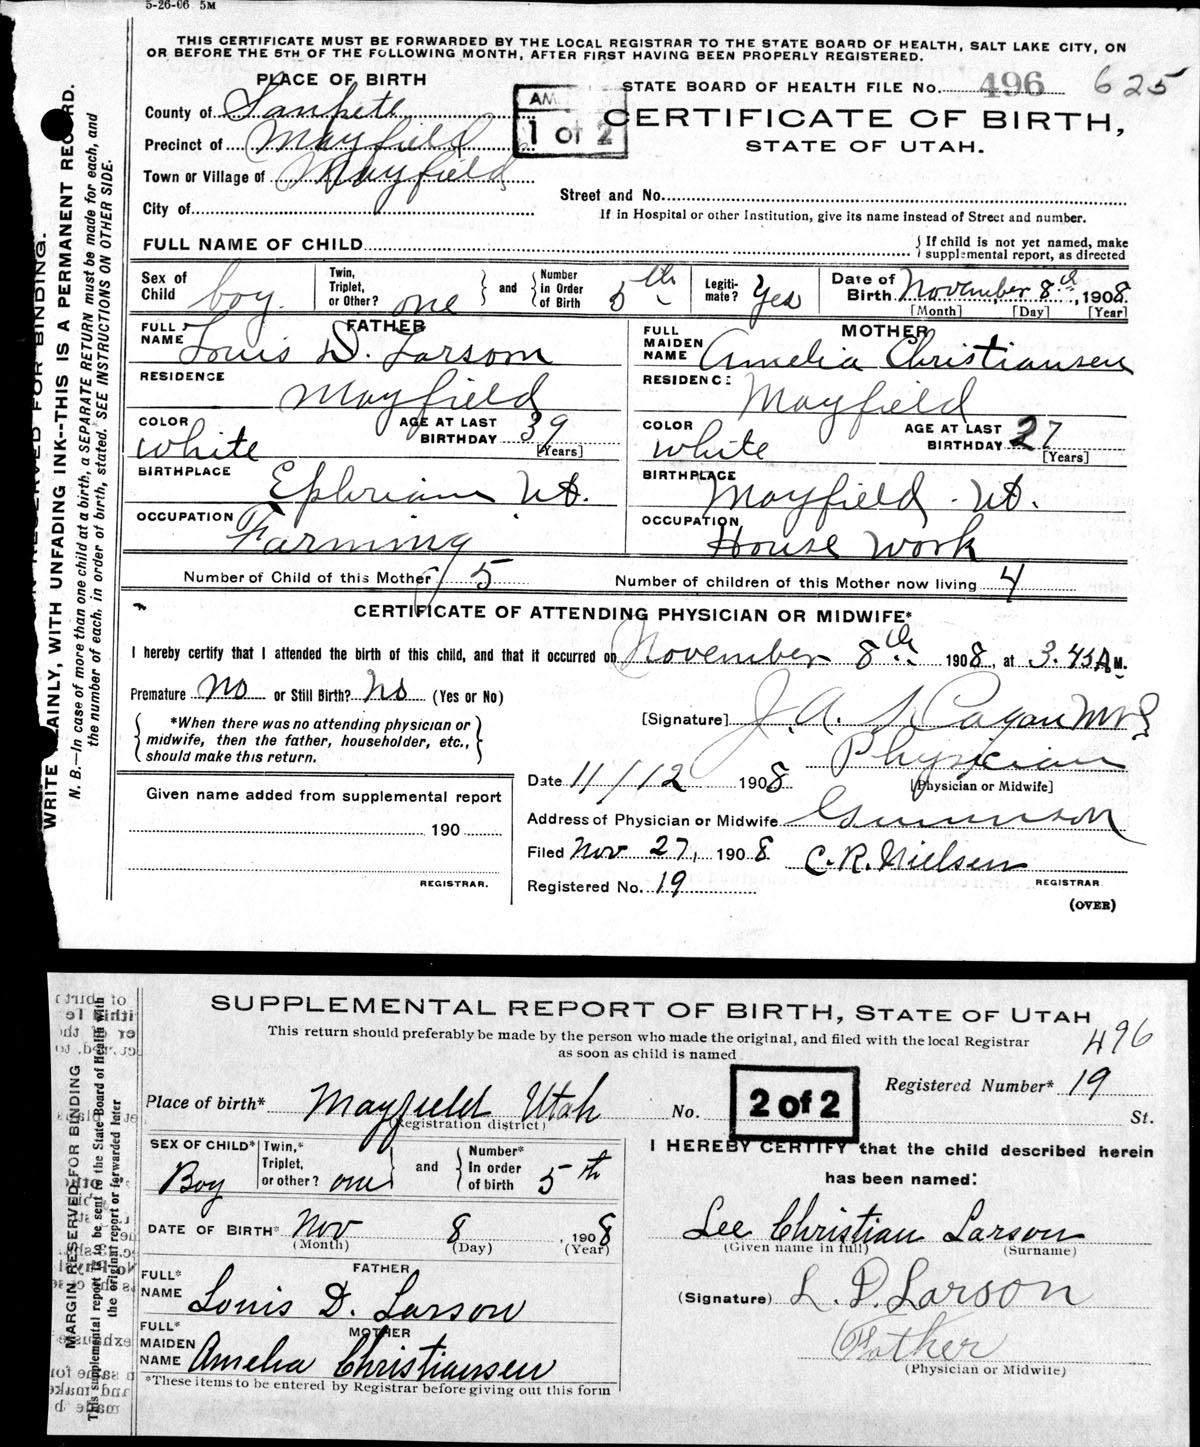 5-26-06 5M
THIS CERTIFICATE MUST BE FORWARDED BY THE LOCAL REGISTRAR TO THE STATE BOARD OF HEALTH, SALT LAKE CITY, ON
OR BEFORE THE 5TH OF THE FOLLOWING MONTH, AFTER FIRST HAVING BEEN PROPERLY REGISTERED.
PLACE OF BIRTH
STATE BOARD OF HEALTH FILE No. 496 625
County of Sanpete
1 of 2
CERTIFICATE OF BIRTH,
Precinct of Mayfield
STATE OF UTAH.
Town or Village of Mayfield
Street and No.
City of
If in Hospital or other Institution, give its name instead of Street and number.
FULL NAME OF CHILD
If child is not yet named, make
supplemental report, as directed
Sex of Child boy
Twin, Triplet, or Other? one
and
Number in Order of Birth 5th
Legitimate? Yes
Date of Birth November 8th, 1908
[Month] [Day] [Year]
FATHER
FULL NAME Louis D. Larson
RESIDENCE Mayfield
COLOR white
AGE AT LAST BIRTHDAY 39
[Years]
BIRTHPLACE Ephriam Ut.
OCCUPATION Farming
MOTHER
FULL MAIDEN NAME Amelia Christiansen
RESIDENCE: Mayfield
COLOR white
AGE AT LAST BIRTHDAY 27
[Years]
BIRTHPLACE Mayfield - Ut.
OCCUPATION House Work
Number of Child of this Mother 5
Number of children of this Mother now living 4
CERTIFICATE OF ATTENDING PHYSICIAN OR MIDWIFE*
I hereby certify that I attended the birth of this child, and that it occurred on November 8th 1908, at 3.45 A M.
Premature no or Still Birth? no (Yes or No)
*When there was no attending physician or
midwife, then the father, householder, etc.,
should make this return.
[Signature] J. A.
Physician
[Physician or Midwife]
Date 11/12 1908
Address of Physician or Midwife Gunnison
Filed Nov 27, 1908 C. R. Nielsen
REGISTRAR
Registered No. 19
(OVER)
Given name added from supplemental report
190
REGISTRAR.
WRITE PLAINLY, WITH UNFADING INK--THIS IS A PERMANENT RECORD.
N. B.—In case of more than one child at a birth, a SEPARATE RETURN must be made for each, and
the number of each, in order of birth, stated. SEE INSTRUCTIONS ON OTHER SIDE.
SUPPLEMENTAL REPORT OF BIRTH, STATE OF UTAH
This return should preferably be made by the person who made the original, and filed with the local Registrar
as soon as child is named
496
2 of 2
Registered Number* 19
Place of birth* Mayfield Utah
(Registration district)
No. St.
SEX OF CHILD* Boy
Twin,* Triplet, or other? one
and
Number* In order of birth 5th
DATE OF BIRTH* Nov 8, 1908
(Month) (Day) (Year)
FATHER
FULL* NAME Louis D. Larson
MOTHER
FULL* MAIDEN NAME Amelia Christiansen
*These items to be entered by Registrar before giving out this form
I HEREBY CERTIFY that the child described herein
has been named:
Lee Christian Larson
(Given name in full) (Surname)
(Signature) L. D. Larson
Father
(Physician or Midwife)
MARGIN RESERVED FOR BINDING
This supplemental report is to be sent to the State Board of Health with
the original report or forwarded later